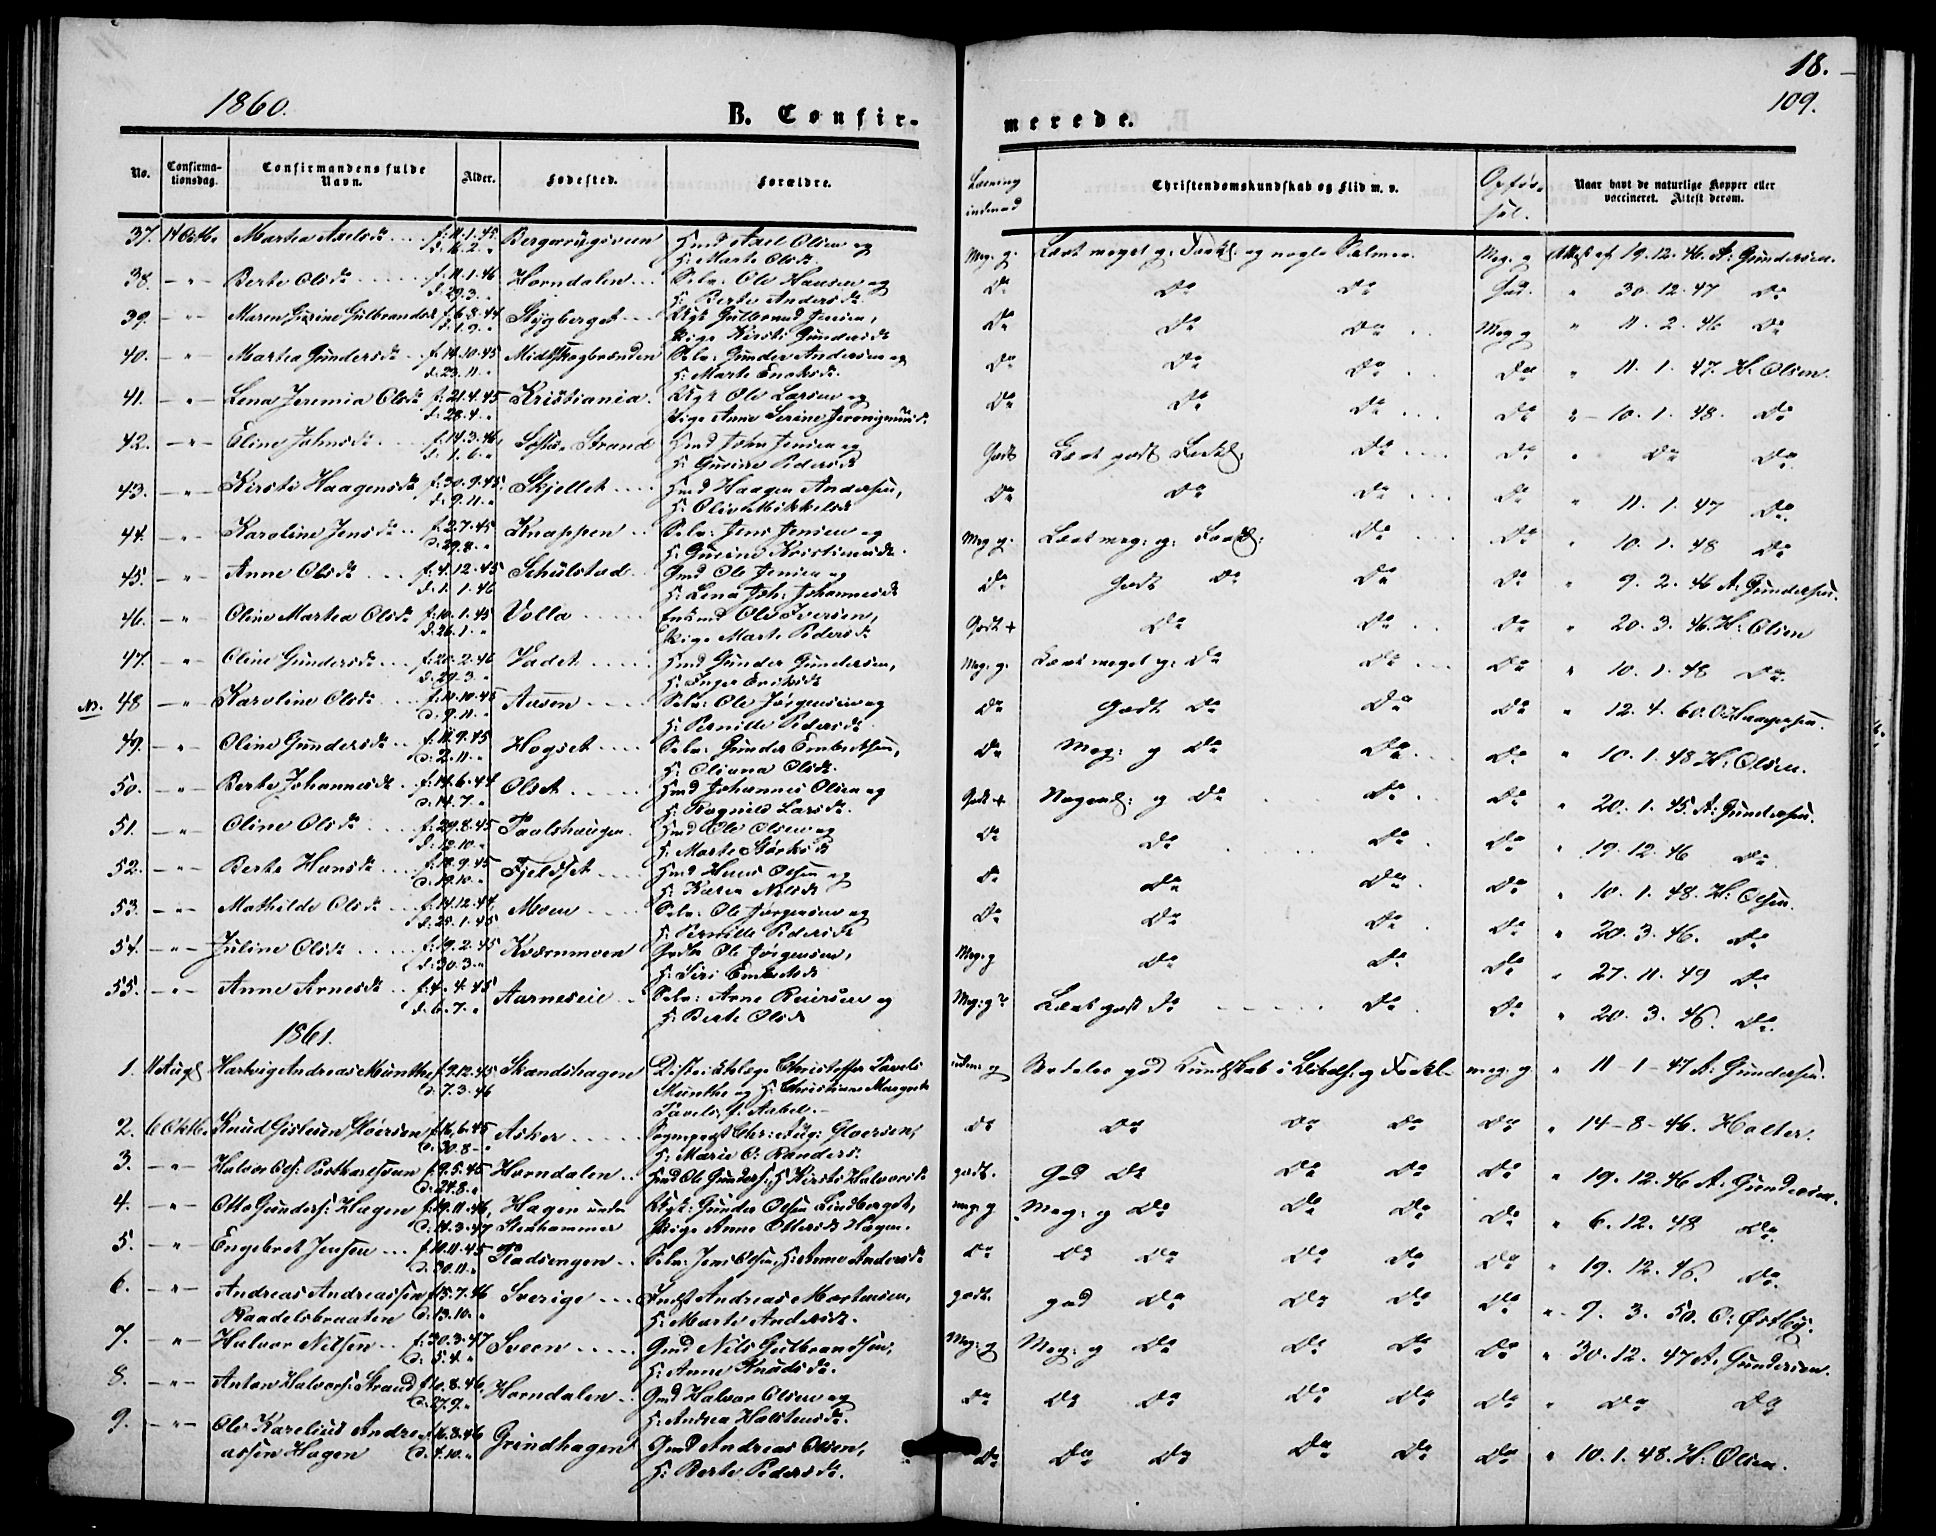 18.
1860.
B. Confir-
merede.
109.
No.
Confirma-
tionsdag.
Confirmandens fulde
Navn.
Alder.
Fødested.
Forældre.
Læsning
indenad
Christendomskundskab og Flid m. v.
Opfør-
sel.
Naar havt de naturlige Kopper eller
vaccineret. Attest derom.
37. 14 Octb. Martea Axelsd. f. 11.1.45 d. 16.2. Hmd Axel Olsen og H: Marte Olsd. Meg. g. Læst meget g. Forkl. og nogle Psalmer. Meg. g Attest af 19.12.46 A. Gundersen.
38. -"- Berte Olsd. f. 11.1.46 d. 29.3. Horndalen Selv. Ole Hansen og H: Berte Andersd. Do Do Do God. " 30.12.47 Do
39. -"- Maren Gurine Gulbrandsd. f. 6.8.44 d. 1.9. Stygberget Ugt Gulbrand Jensen, Pige Kirsti Gundersd. Do Do Do Meg g " 11.2.46 Do
40. -"- Martea Gundersd. f. 14.10.45 d. 23.11. Midtskogbrænden Selv. Gunder Andersen og H: Marte Do Do Do Do " 11.1.47. H. Olsen.
41. -"- Lena Jeremia Olsd. f. 21.4.45 d. 28.4. Kristiania. Ugt Ole Larsen og Pige Anne Serine Do Do Do Do " 10.1.48. Do
42. -"- Eline Johnsd. f. 14.3.46 d. 1.6. Strand Hmd John Jensen og H: Gurine Pedersd. Godt Læst godt Forkl. Do Do " Do Do
43. -"- Kirsti Haagensd. f. 30.9.45 d. 9.11. Skjellet Hmd Haagen Andersen, H: Olive Mikkelsd. Do Do Do Do " 11.1.47 Do
44. -"- Karoline Jensd. f. 2.7.45 d. 29.8. Knappen Selv: Jens Jensen og H: Gurine Kristiansd. Meg g. Læst meg: g: Forkl: Do Do " 10.1.48 Do
45. -"- Anne Olsd. f. 4.12.45 d. 1.1.46 Schulstad Gmd Ole Jensen og H: Lena Joh: Johannesd. Do Godt Do Do Do " 9.2.46 A: Gundersen.
46. -"- Oline Martea Olsd. f. 10.1.45 d. 26.1. Volla Enkmd Ole Iversen, Pige Marte Pedersd. Godt + Do Do Do " 20.3.46. H: Olsen
47. -"- Oline Gundersd. f. 20.2.46 d. 29.3. Vadet Hmd Gunder Gundersen, H: Inger Eriksd. Meg: g. Læst meget g: Do Do Do " 10.1.48 Do
NB. 48 -"- Karoline Olsd. f. 10.10.45 d. 9.11. Aasen Selv: Ole Jørgensen og H: Pernille Pedersd. Do Godt Do Do Do " 12.4.60. O: Haagensen.
49. -"- Oline Gundersd. f. 11.9.45 d. 2.11. Hogset Selv: Gunder Embretsen, H: Oliana Olsd. Do Meg: g Do Do Do " 10.1.48 H: Olsen.
50. -"- Berte Johannesd. f. 14.6.44 d. 14.7. Olset Hmd Johannes Olsen og H: Ragnild Larsd. Godt + Nogenl: g Do Do Do " 20.1.45. A: Gundersen.
51. -"- Oline Olsd. f. 29.8.45 d. 12.10. Paalshaugen. Hmd Ole Olsen og H: Marte Størksd. Do Do Do Do " 19.12.46 Do
52. -"- Berte Hansd. f. 18.9.45 d. 19.10. Fjeldset Hmd Hans Olsen og H: Karen Nilsd. Do Do Do Do " 10.1.48. H: Olsen.
53. -"- Mathilde Olsd. f. 14.12.44 d. 25.1.45 Moen Selv: Ole Jørgensen og H: Pernille Pedersd. Do Do Do Do " 20.3.46. Do
54. -"- Juline Olsd. f. 19.2.45 d. 30.3. Kværnmoen Ole Jørgensen, H: Siri Embretsd. Meg: g Do Do Do " 27.11.49 Do
55. -"- Anne Arnesd. f. 4.4.45 d. 6.7. Aarneseie Selv: Arne Reiersen og H: Berte Olsd. Meg: g Læst godt Do Do Do " 20.3.46. Do
1861.
1. 11 Augt Hartvig Andreas Munthe f. 9.12.45 d. 7.3.46 Skandshagen Districtslæge Christoffer Pavels Munthe og H: Christiane Margrete Pavels f. Aabel. udm: g Særdeles god Kundskab i Bibelh: og Forkl. meg: g. " 11-1-47 A: Gundersen.
2. 6 Oktb. Knud Gislesen Gløersen f. 16.6.45 d. 30.8 Asker Sognepræst Chr: Aug: Gløersen, H: Marie C: Randers. Do Do Do Do Do " 14-8-46. Holter.
3. -"- Halvor Ols: f. 9.5.45 d. 24.8. Horndalen Hmd Ole Gunders:, H: Kirsti Halvorsd. godt. God Do Do Do Do " 19.12.46 A: Gundersen.
4. -"- Otto Gunders: Hagen f. 19.11.46, d. 14.3.47 Hagen under Stenhammer Ugt: Gunder Olsen Lindberget, Pige Anne Ottersd. Hagen. meg: g Meg: g Do Do Do Do " 6.12.48 Do
5. -"- Engebret Jensen f. 10.11.45 d. 30.11. Pladsengen Selv: Jens Olsen, H: Anne Andersd. Do Do Do Do Do Do " 19.12.46. Do
6. -"- Andreas Andreassen Raadelsbraaten f. 15.7.46 d. 13.10. Sverige Indst Andreas Mortensen, H: Marte Andersd. godt. god Do Do Do Do " 9.3.50. O: Østby.
7. -"- Halvor Nilsen f. 30.3.47 d. 5.4. Sveen Gmd Nils Gulbrandsen, H: Anne Knudsd. Meg: g Meg: g Do Do Do Do " 30.12.47 A: Gundersen.
8. -"- Anton Halvors: Strand f. 10.8.46. d. 27.9. Horndalen Gmd Halvor Olsen og H: Andrea Halstensd. Do Do Do Do Do Do " Do Do
9. -"- Ole Karelius Andreassen Hagen f. 16.8.46 d. 4.10. Grindhagen Gmd Andreas Olsen, H: Berte Pedersd. Do Do Do Do Do Do " 10.1.48. H: Olsen.